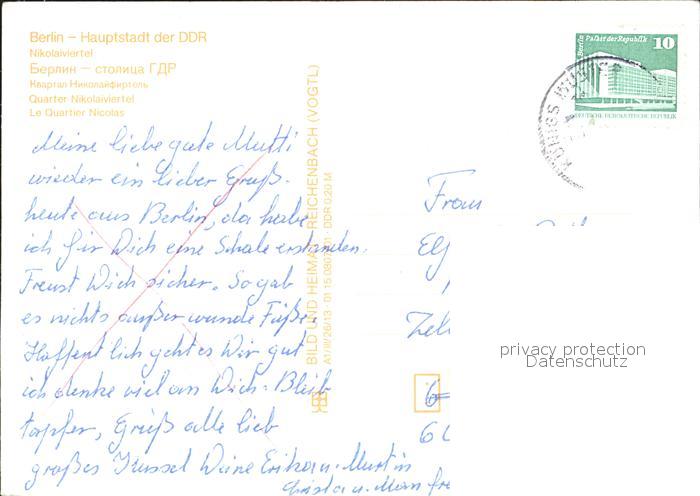 Berlin – Hauptstadt der DDR
Nikolaiviertel
Берлин – столица ГДР
Квартал Николайфиртель
Quarter Nikolaiviertel
Le Quartier Nicolas
Berlin Palast der Republik 10
DEUTSCHE DEMOKRATISCHE REPUBLIK
KÖNIGS WUSTER
BILD UND HEIMAT REICHENBACH (VOGTL)
A1/III/26/13 01 15 0807 DDR 0,20 M
Meine liebe gute Mutti
wieder ein lieber Gruß
heute aus Berlin, da habe
ich für Dich eine Schale erstanden.
Freust Dich sicher. So gab
es nichts außer wunde Füße.
Hoffentlich geht es Dir gut
ich denke viel an Dich. Bleib
tapfer, Grüß alle lieb
großes Küssel Deine Erika u. Martin
Christa u. Manfre
Frau
privacy protection
Datenschutz